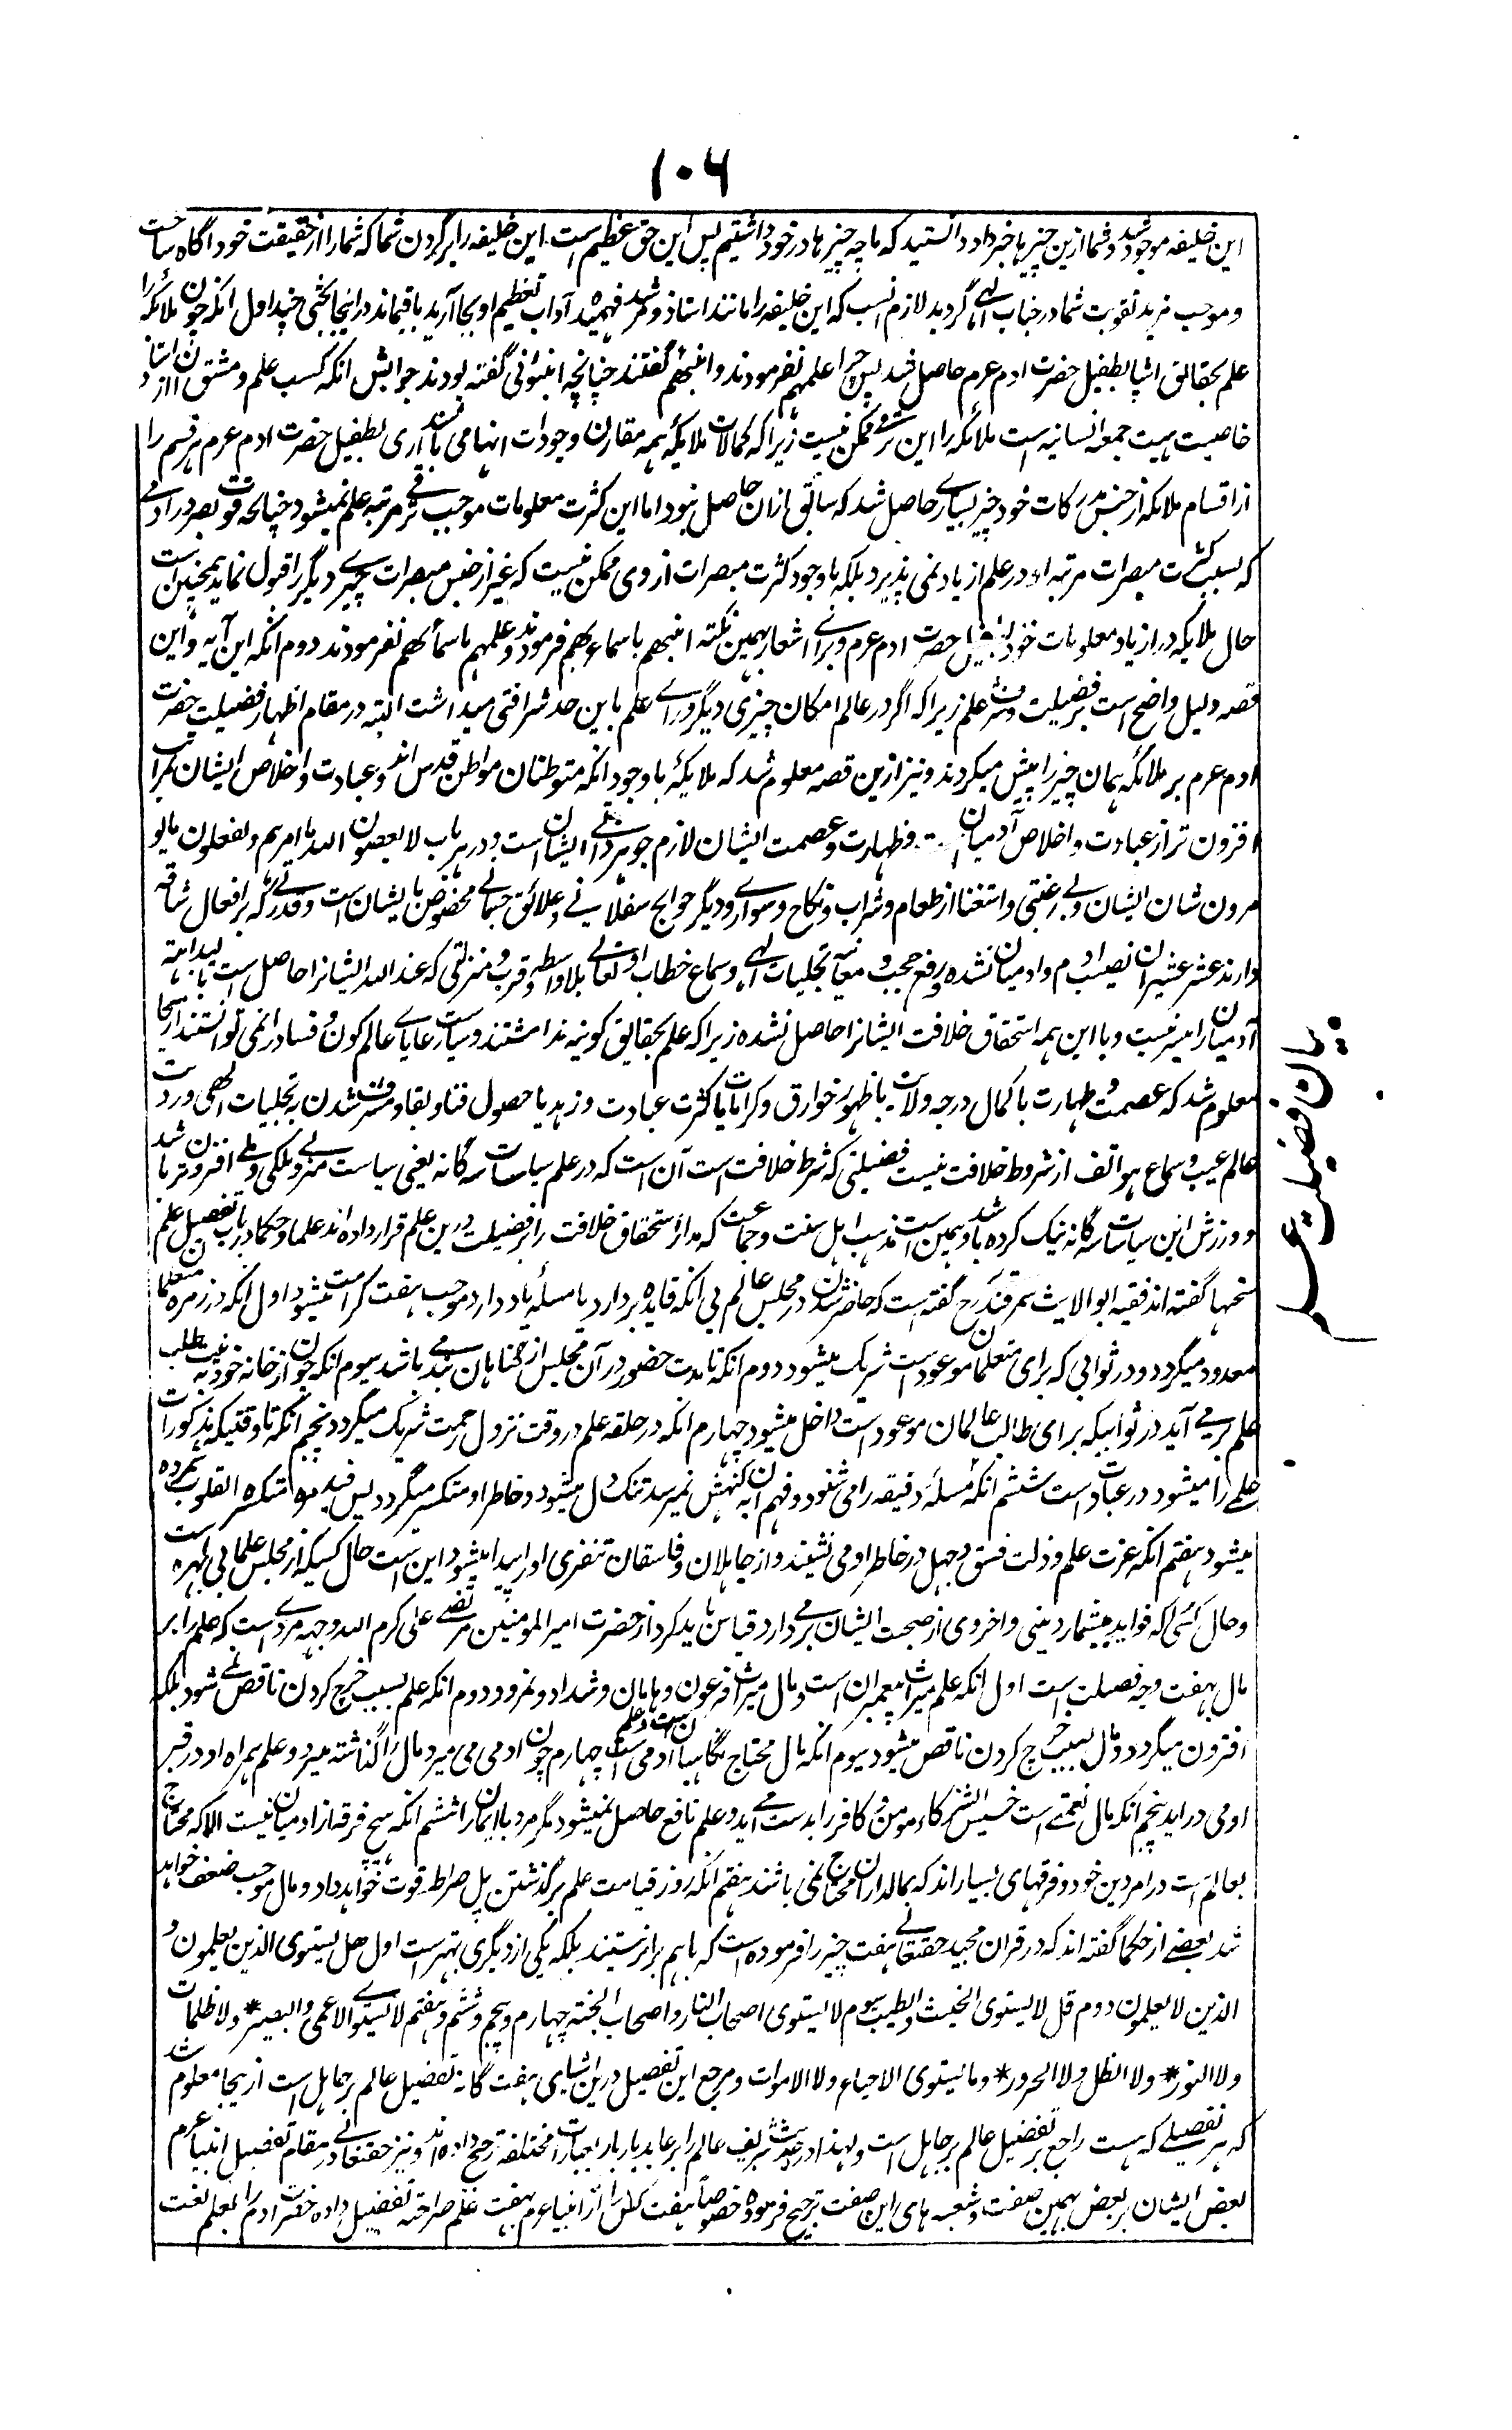 ۱۰۶
این خلیفه موجود شد و شما ازین چیزها خبردار و دانستید که ما چه چیزها در خود داشتیم پس این حق عظیم است این خلیفه را بر گردن شما که شما را از حقیقت خود آگاه ساخت
و موجب مزید تقویت شما در جناب الهی گردید لازم است که این خلیفه را مانند استاذ و مرشد فهمیده آداب تعظیم او بجا آرید باقیماند در اینجا بحثی چند اول انکه چون ملائکه را
علم بحقائق اشیا بطفیل حضرت ادم عرم حاصل شد پس چرا علمهم نفرمودند و انبئهم گفتند چنانچه انبئونی گفته بودند جوابش انکه کسب علم و مشق آن از استاذ
خاصیت هیت جمعه انسانیه است ملائکه را این ترقی ممکن نیست زیرا که کمالات ملایکه همه مقارن وجودات انها می باشند آری بطفیل حضرت ادم عرم هر قسم را
از اقسام ملائکه از جنس مدرکات خود چیز بسیاری حاصل شد که سابق ازان حاصل نبود اما این کثرت معلومات موجب ترقی مرتبه علم نمیشود چنانچه قوت بصر در ادمی
که بسبب کثرت مبصرات مرتبه او در علم ازیاد نمی پذیرد بلکه باوجود کثرت مبصرات از وی ممکن نیست که غیر از جنس مبصرات چیزی دیگر را قبول نماید همچنین است
حال ملایکه در ازیاد معلومات خود بطفیل حضرت ادم عرم و برای اشعار بهمین نکته انبئهم باسمائهم فرمودند و علمهم باسمائهم نفرمودند دوم انکه این آیه و این
قصه دلیل واضح است بر فضیلت و شرف علم زیرا که اگر در عالم امکان چیزی دیگر ورای علم باین حد شرافتی میداشت البته در مقام اظهار فضیلت حضرت
ادم عرم بر ملائکه همان چیز را پیش میکردند و نیز ازین قصه معلوم شد که ملایکه باوجود انکه متوطنان مواطن قدس اند و عبادت و اخلاص ایشان بمراتب
افزون تر از عبادت و اخلاص آدمیان است و طهارت و عصمت ایشان لازم جوهر ذاتی ایشان است و در هر باب لا یعصون الله ما امرهم و یفعلون ما یؤ
مرون شان ایشان و بی رغبتی و استغنا از طعام و شراب و نکاح و سواری و دیگر حوایج سفلانیه و علائق جسمانی مخصوص بایشان است و قدرتیکه بر افعال شاقه
دارند عشر عشیر ان نصیب ادم وادمیان نشده و رفع حجب و معاینه تجلیات الهی و سماع خطاب او تعالی بلا واسطه و قرب و منزلتی که عند الله ایشانرا حاصل است بالبداهته
آدمیان را میسر نیست و با این همه استحقاق خلافت ایشانرا حاصل نشده زیرا که علم بحقایق کونیه نداشتند و سیاست رعایای عالم کون و فساد را نمی توانستند ازینجا
معلوم شد که عصمت و طهارت با کمال درجه ولایت یا ظهور خوارق و کرامات یا کثرت عبادت و زهد یا حصول فنا و بقا و مشرف شدن به تجلیات الهی و رویت
عالم غیب و سماع هواتف از شروط خلافت نیست فضیلتی که شرط خلافت است آن است که در علم سیاسات سه گانه یعنی سیاست منزلی و ملکی و ملی افزون تر باشد
و ورزش این سیاسات سه گانه نیک کرده باشد و همین است مذهب اهل سنت و جماعت که مدار استحقاق خلافت را بر فضیلت درین علم قرار داده اند علما و حکما در باب تفضیل علم
سخنها گفته اند فقیه ابو اللیث سمرقندی رح گفته است که حاضر شدن در مجلس عالم بی انکه فایده بردارد یا مسئله یاد دارد موجب هفت کرامت میشود اول انکه در زمره متعلمان
معدود میگردد و در ثوابی که برای متعلمان موعود است شریک میشود دوم انکه تا مدت حضور در آن مجلس از گناهان بند می باشد سیوم انکه چون از خانه خود به نیت طلب
علم بر می آید در ثوابیکه برای طالب علمان موعود است داخل میشود چهارم انکه در حلقه علم در وقت نزول رحمت شریک میگردد پنجم انکه تا وقتیکه مذکورات
علمی را میشنود در عبادت است ششم انکه مسئله دقیقه را می شنود و فهم ان به کنهش نمیرسد تنگ دل میشود و خاطر او منکسر میگردد پس در زمره منکسره القلوب شمرده
میشود هفتم انکه عزت علم و ذلت فسق و جهل در خاطر او می نشیند و از جاهلان و فاسقان تنفری او را پیدا میشود این است حال کسیکه از مجلس علما بی بهره است
و حال کسی که فواید بیشمار دینی و اخروی از صحبت ایشان بر می دارد قیاس باید کرد از حضرت امیر المومنین مرتضی علی کرم الله وجهه مروی است که علم را بر
مال بهفت وجه فضیلت است اول انکه علم میراث پیغمبران است و مال میراث فرعون و هامان و شداد و نمرود دوم انکه علم بسبب خرچ کردن ناقص نمی شود بلکه
افزون میگردد و مال بسبب خرچ کردن ناقص میشود سیوم انکه مال محتاج نگاهبان است و علم نگاهبان ادمی است چهارم چون ادمی می میرد مال را گذاشته میرود و علم همراه او در قبر
او می دراید پنجم انکه مال نعمتی است خسیس الشرکاء مومن و کافر را بدست می آید و علم نافع حاصل نمیشود مگر مرد باایمان را ششم انکه هیچ فرقه از ادمیان نیست الا که محتاج
بعالم است در امر دین خود و فرقهای بسیار اند که بمالداران محتاج نمی باشند هفتم انکه روز قیامت علم بر گذشتن پل صراط قوت خواهد داد و مال موجب ضعف خواهد
شد بعضی از حکما گفته اند که در قران مجید حقتعالی هفت چیز را فرموده است که باهم برابر نیستند بلکه یکی از دیگری بهتر است اول هل یستوی الذین یعلمون و
الذین لا یعلمون دوم قل لا یستوی الخبیث و الطیب سیوم لا یستوی اصحاب النار و اصحاب الجنة چهارم و پنجم و ششم و هفتم لا یستوی الاعمی و البصیر* ولا الظلمات
ولا النور* ولا الظل ولا الحرور* وما یستوی الاحیاء ولا الاموات و مرجع این تفصیل درین اشیای هفت گانه تفضیل عالم بر جاهل است ازینجا معلوم شد
که هر تفضیلی که هست راجع بر تفضیل عالم بر جاهل است و لهذا در حدیث شریف عالم را بر عابد بار بار بعبارات مختلفه ترجیح داده اند و نیز حقتعالی در مقام تفضیل انبیا عرم
بعض ایشان بر بعض بهمین صفت و شعبه های این صفت ترجیح فرموده خصوصا هفت کس را از انبیا عرم بهفت علم صراحته تفضیل داده حضرت ادم را بعلم لغت
بیان فضیلت علم